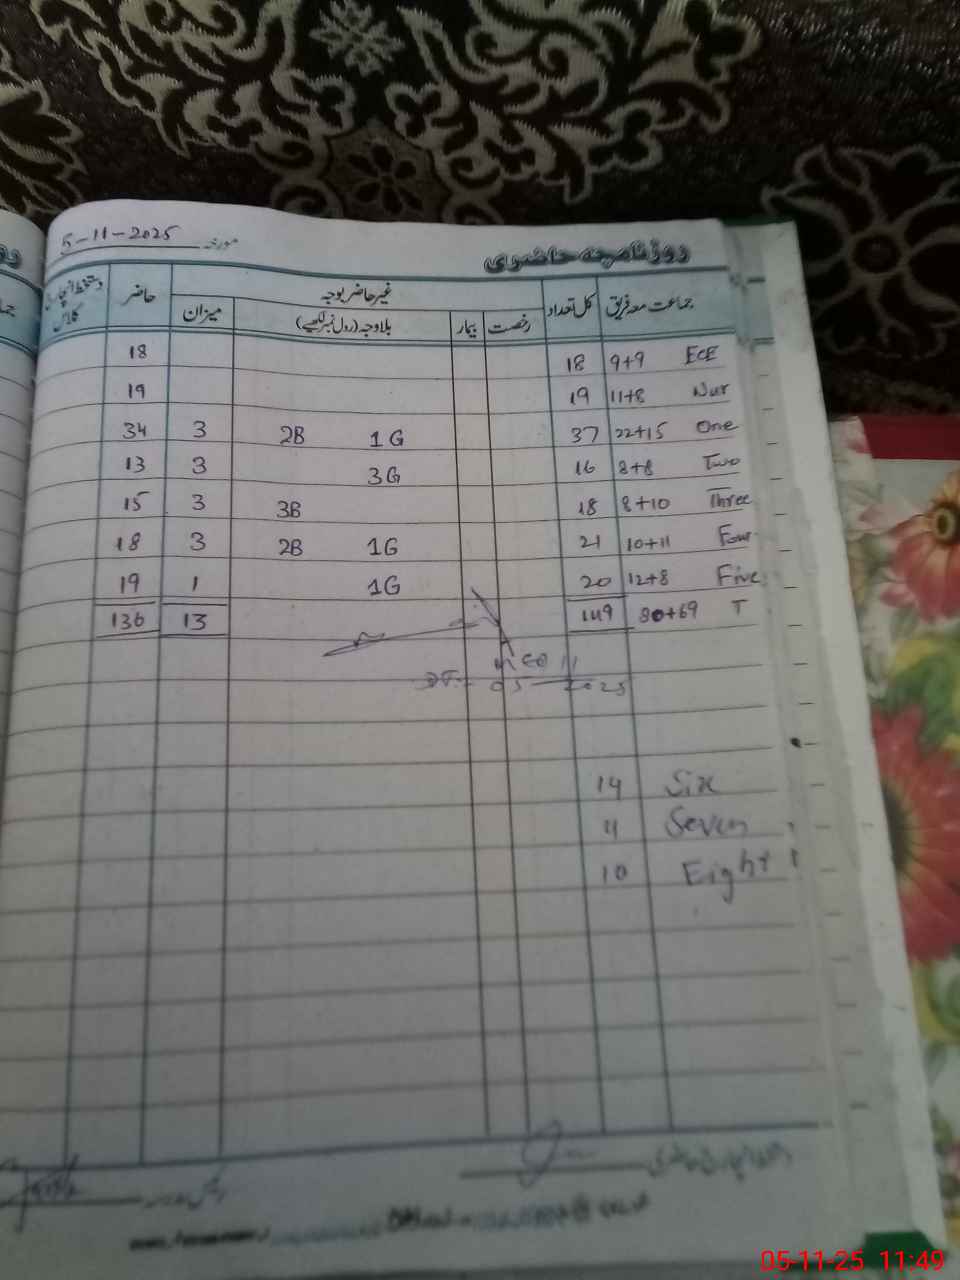 روزنامچہ حاضری مورخہ 5-11-2025
جماعت معہ فریق کل تعداد غیر حاضر بوجہ حاضر دستخط انچارج کلاس
رخصت بیمار بلاوجہ (رول نمبر لکھیے) میزان
ECE 9+9 18 18
Nur 11+8 19 19
One 22+15 37 1G 2B 3 34
Two 8+8 16 3G 3 13
Three 8+10 18 3B 3 15
Four 10+11 21 1G 2B 3 18
Five 12+8 20 1G 1 19
T 80+69 149 13 136
05 2025
Six 14
Seven 11
Eight 10
05-11-25 11:49